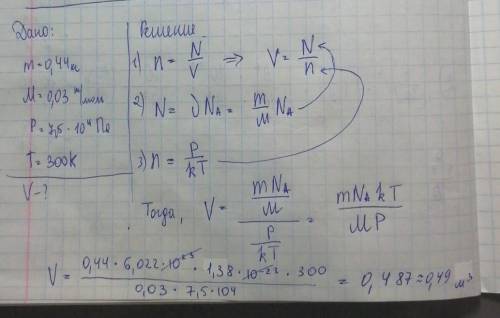 Дано:
m = 0,44 кг
M = 0,03 кг/моль
P = 7,5 · 10⁴ Па
T = 300 K
V - ?
Решение
1) n = N/V => V = N/n
2) N = νNₐ = m/M Nₐ
3) n = P/kT
Тогда, V = (mNₐ/M)/(P/kT) = mNₐkT/MP
V = (0,44 · 6,022 · 10²³ · 1,38 · 10⁻²³ · 300)/(0,03 · 7,5 · 104) = 0,487 ≈ 0,49 м³